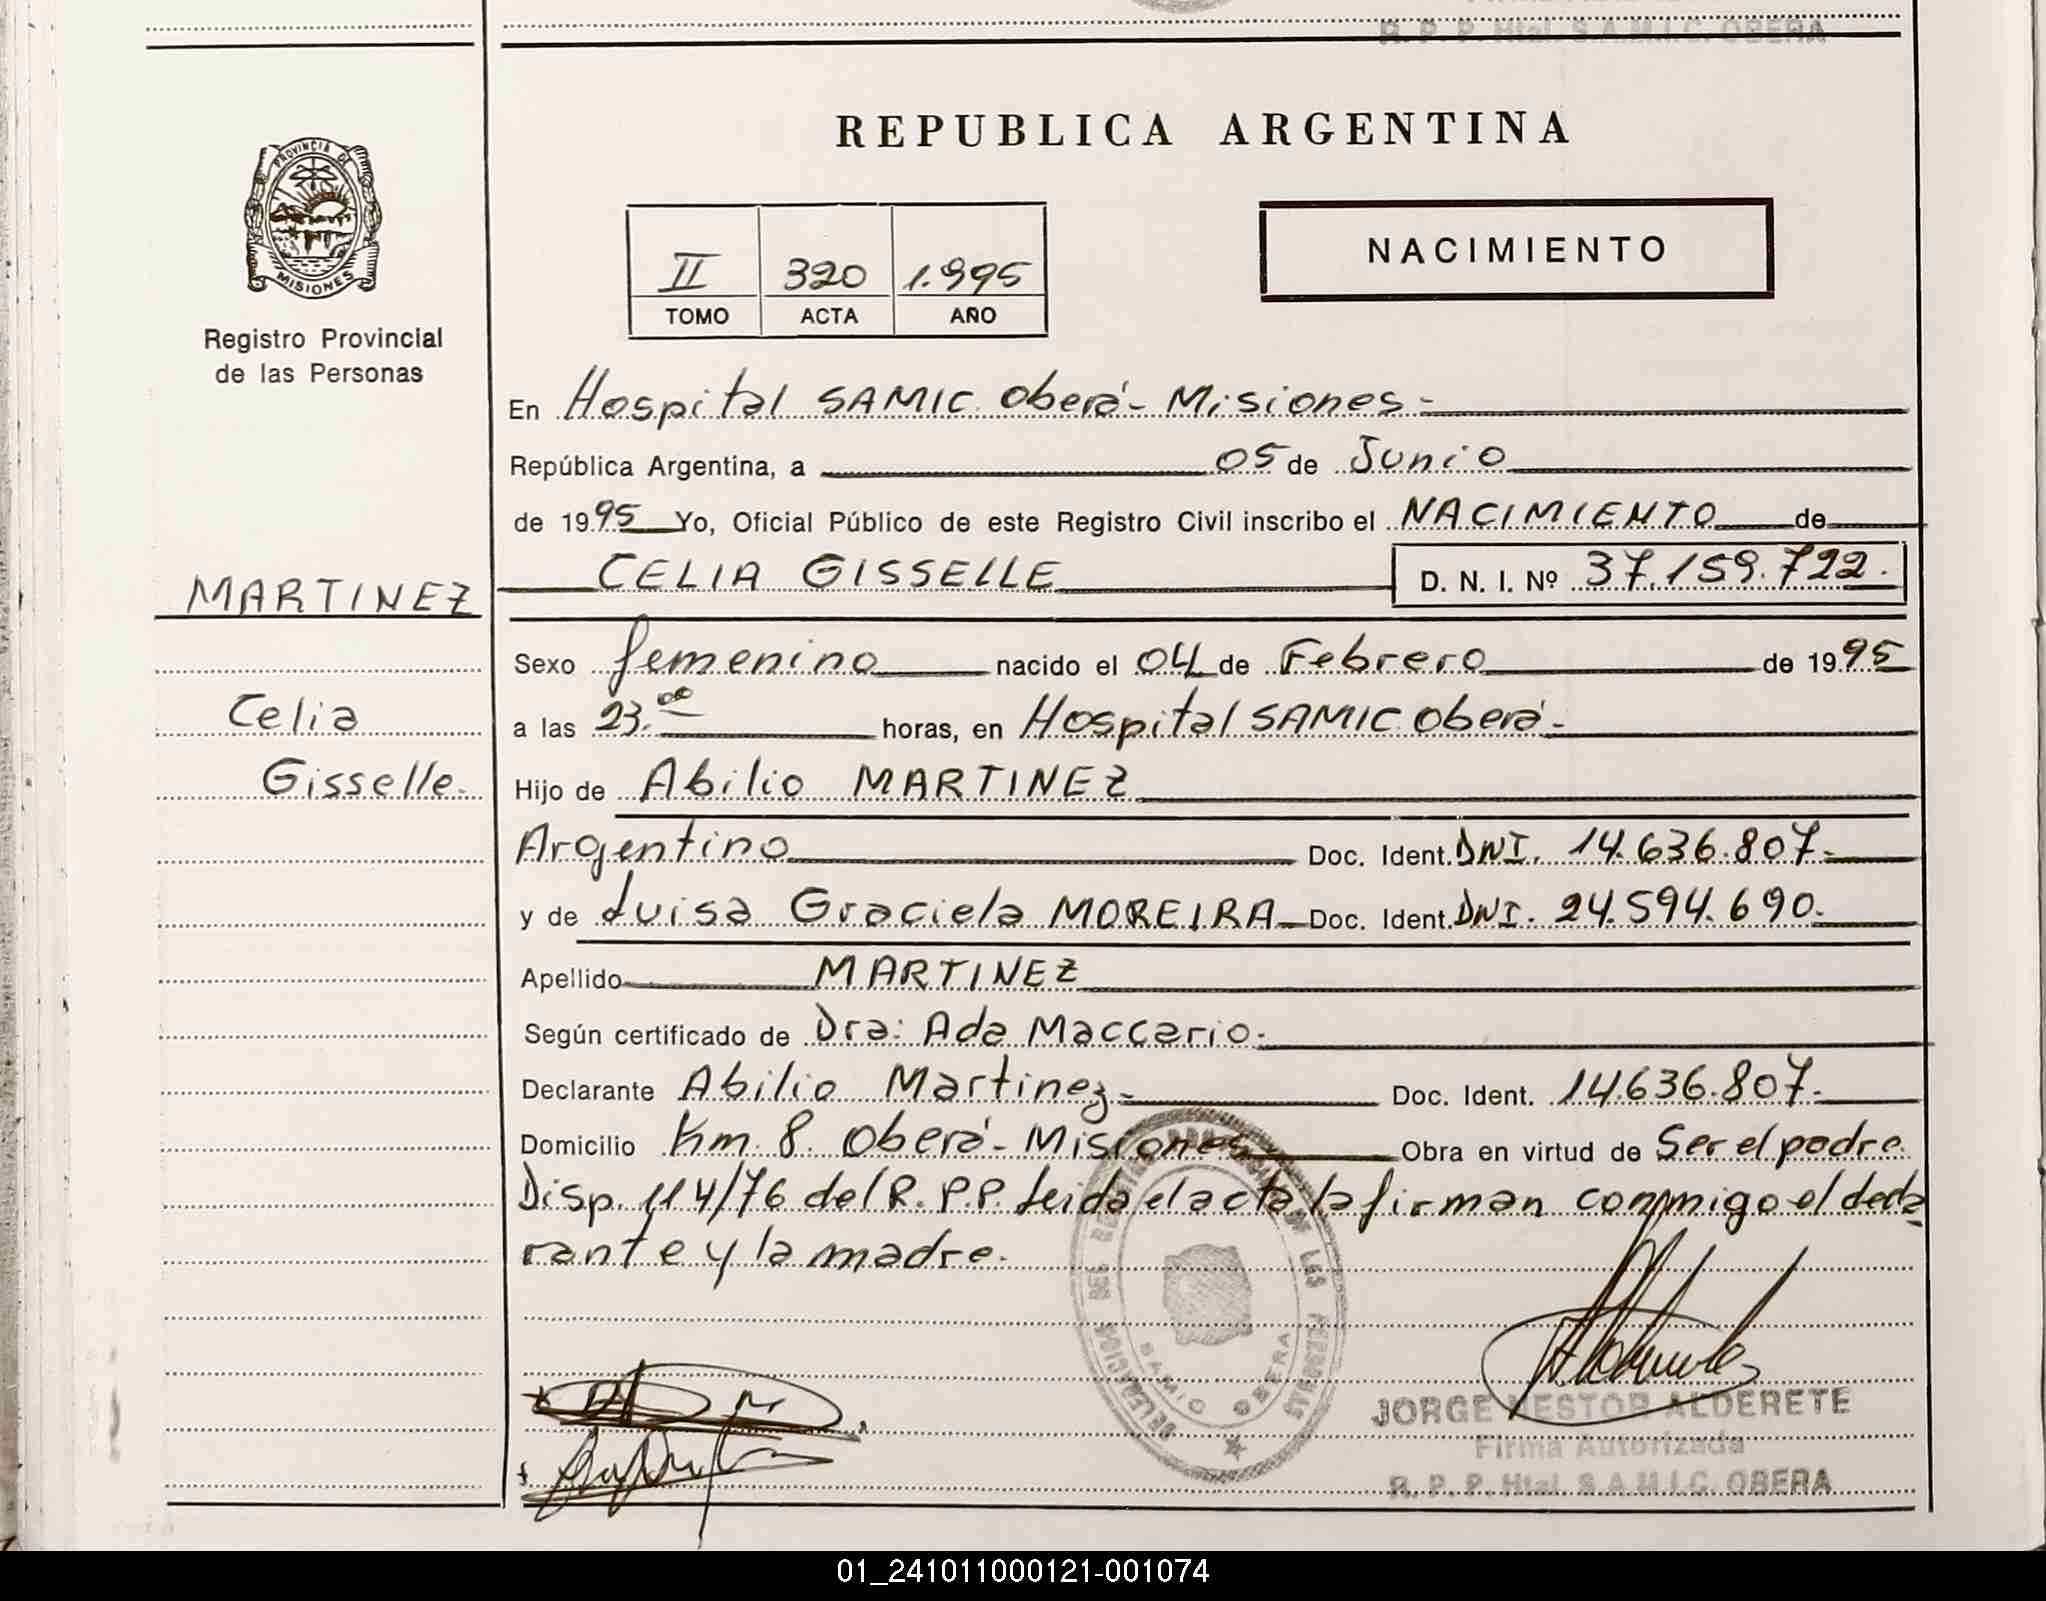 R. P. P. Htal. S.A.M.I.C. OBERA
REPUBLICA ARGENTINA
PROVINCIA DE MISIONES
Registro Provincial
de las Personas
II 320 1.995
TOMO ACTA AÑO
NACIMIENTO
En Hospital SAMIC Oberá - Misiones -
República Argentina, a 05 de Junio
de 1995 Yo, Oficial Público de este Registro Civil inscribo el NACIMIENTO de
MARTINEZ
CELIA GISSELLE D. N. I. Nº 37.159.722.
Sexo femenino nacido el 04 de Febrero de 1995
Celia
a las 23.00 horas, en Hospital SAMIC Oberá -
Gisselle.
Hijo de Abilio MARTINEZ
Argentino Doc. Ident. DNI. 14.636.807.-
y de Luisa Graciela MOREIRA Doc. Ident. DNI. 24.594.690.-
Apellido MARTINEZ
Según certificado de Dra: Ada Maccario.-
Declarante Abilio Martinez - Doc. Ident. 14.636.807.-
Domicilio Km. 8. Oberá - Misiones Obra en virtud de Ser el padre.
Disp. 114/76 del R.P.P. Leida el acta la firman conmigo el decla-
rante y la madre.
DELEGACION DEL REGISTRO PROVINCIAL DE LAS PERSONAS
SAMIC OBERA
JORGE NESTOR ALDERETE
Firma Autorizada
R. P. P. Htal. S.A.M.I.C. OBERA
01_241011000121-001074